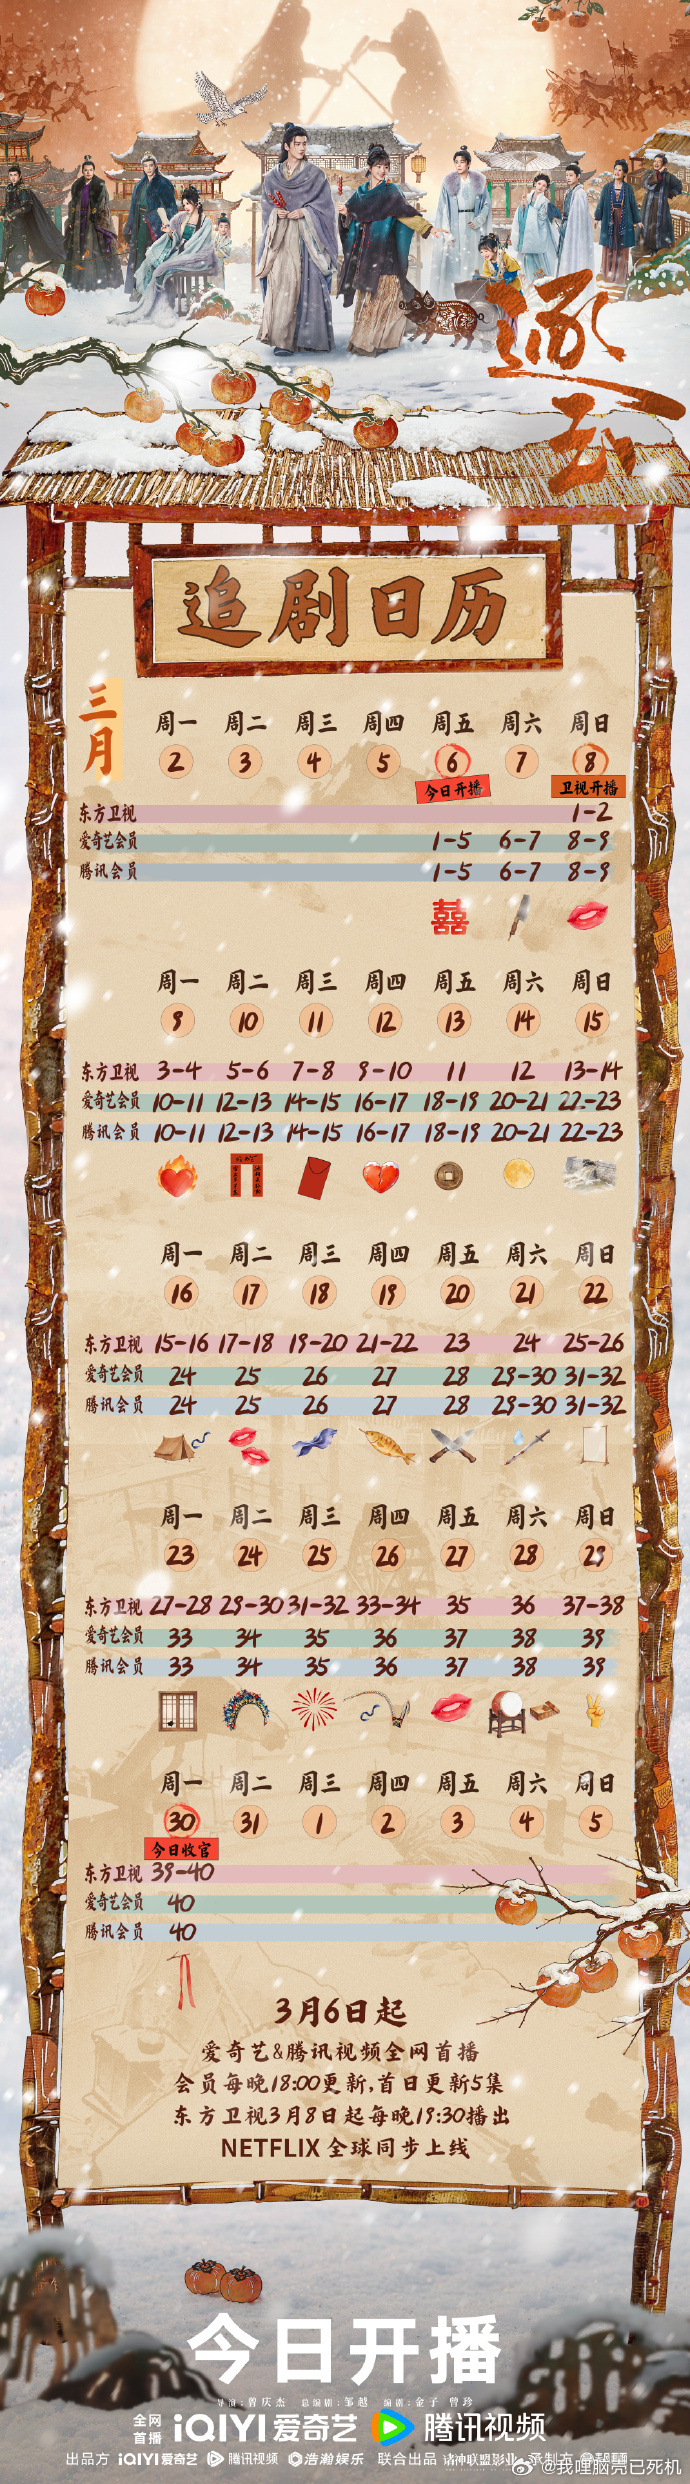 逐玉
追剧日历
三月
周一 周二 周三 周四 周五 周六 周日
2 3 4 5 6 7 8
今日开播 卫视开播
东方卫视 1-2
爱奇艺会员 1-5 6-7 8-9
腾讯会员 1-5 6-7 8-9
囍
周一 周二 周三 周四 周五 周六 周日
9 10 11 12 13 14 15
东方卫视 3-4 5-6 7-8 9-10 11 12 13-14
爱奇艺会员 10-11 12-13 14-15 16-17 18-19 20-21 22-23
腾讯会员 10-11 12-13 14-15 16-17 18-19 20-21 22-23
周一 周二 周三 周四 周五 周六 周日
16 17 18 19 20 21 22
东方卫视 15-16 17-18 19-20 21-22 23 24 25-26
爱奇艺会员 24 25 26 27 28 29-30 31-32
腾讯会员 24 25 26 27 28 29-30 31-32
周一 周二 周三 周四 周五 周六 周日
23 24 25 26 27 28 29
东方卫视 27-28 29-30 31-32 33-34 35 36 37-38
爱奇艺会员 33 34 35 36 37 38 39
腾讯会员 33 34 35 36 37 38 39
周一 周二 周三 周四 周五 周六 周日
30 31 1 2 3 4 5
今日收官
东方卫视 39-40
爱奇艺会员 40
腾讯会员 40
3月6日起
爱奇艺&腾讯视频全网首播
会员每晚18:00更新,首日更新5集
东方卫视3月8日起每晚19:30播出
NETFLIX 全球同步上线
今日开播
导演:曾庆杰 总编剧:邹越 编剧:金子 曾珍
全网首播 iQIYI爱奇艺 腾讯视频
出品方 iQIYI爱奇艺 腾讯视频 浩瀚娱乐 联合出品 诸神联盟影业 承制方
@我哩脑壳已死机